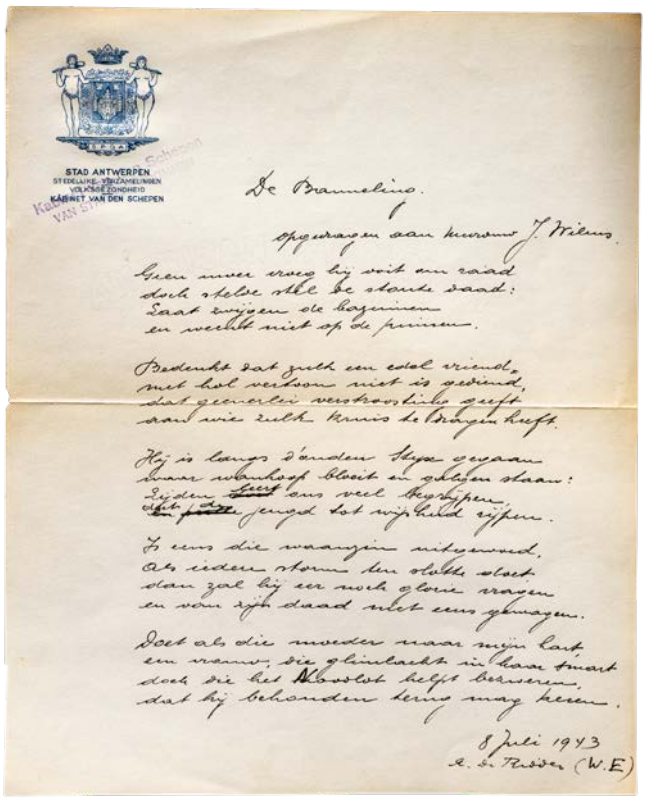 S P Q A
STAD ANTWERPEN
STEDELIJKE VERZAMELINGEN
VOLKSGEZONDHEID
KABINET VAN DEN SCHEPEN
Schepen
VAN
De Banneling.
opgedragen aan Mevrouw J. Wilms.
Geen mver vroeg hij ooit om raad
doch stelde stel de stoute daad:
Laat zwijgen de bazuinen
en weent niet op de puinen.
Bedenkt dat zulk een edel vriend,
met hol vertoon niet is gediend,
dat geenerlei verstroosting geeft
aan wie zulk kruis te dragen heeft.
Hij is langs d'ouden Styx gegaan
waar wanhoop bloeit en galgen staan:
Lijden ons veel begrijpen,
doet de jeugd tot wijsheid rijpen.
Is eens die waanzin uitgewoed,
als iedere storm ten slotte doet
dan zal hij eer noch glorie vragen
en van zijn daad niet eens gewagen.
Doet als die moeder naar mijn hart,
een vrouw, die glimlacht in haar smart
doch die het Noodlot helpt bezweren,
dat hij behouden terug mag keeren.
8 Juli 1943
A. De Ridder (W.E)